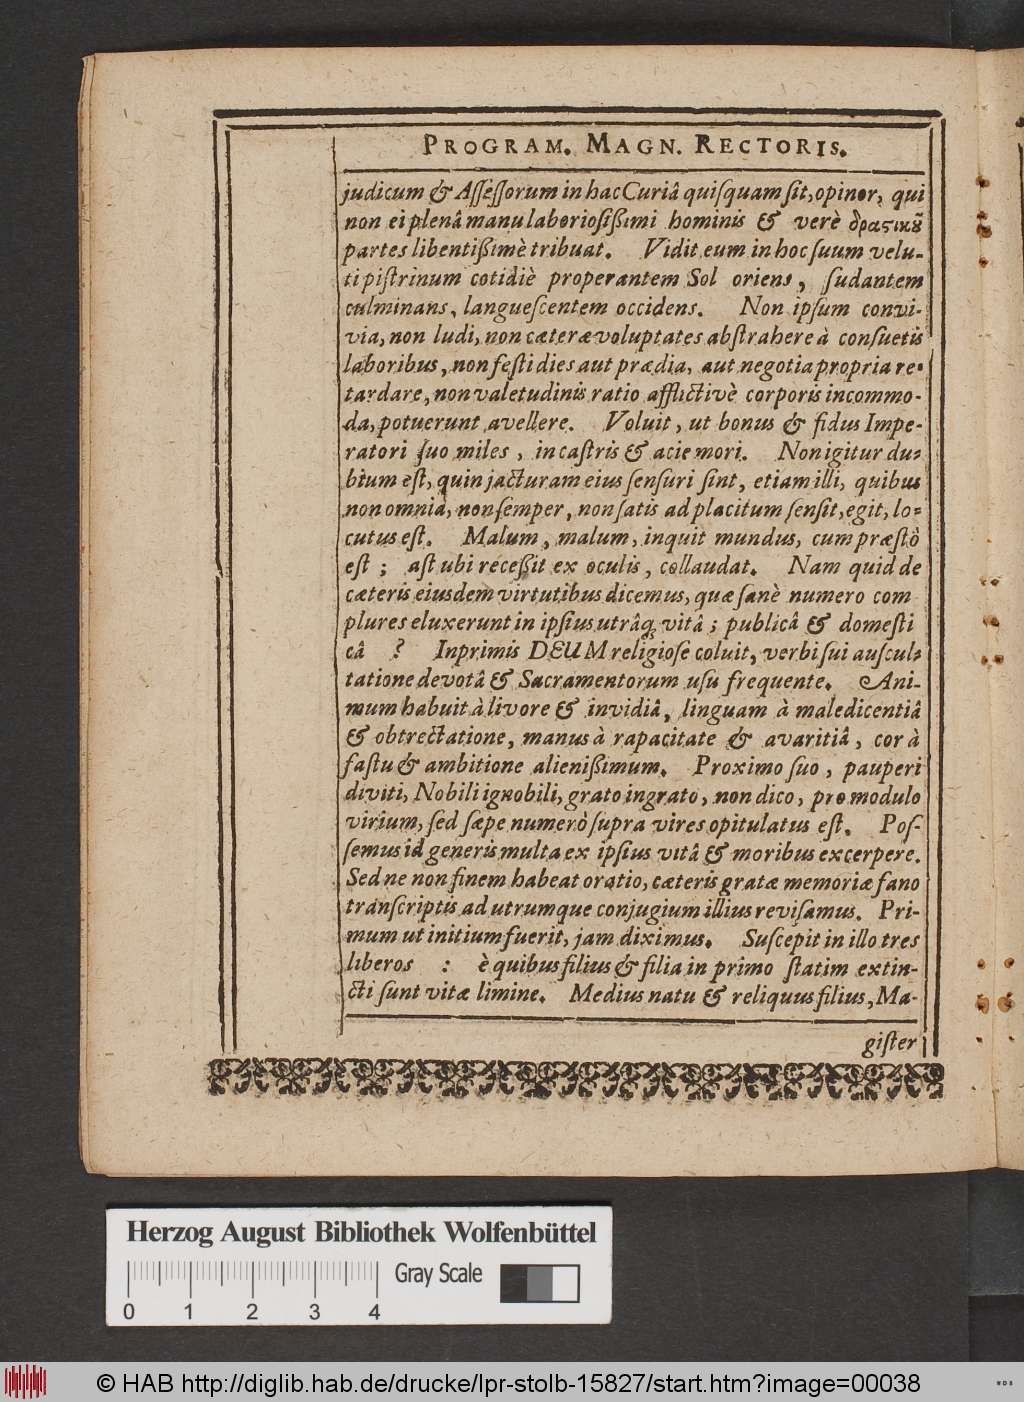 PROGRAM. MAGN. RECTORIS.
judicum & Aſſeſſorum in hac Curiâ quiſquam ſit, opinor, qui
non ei plenâ manu laborioſißimi hominis & verè δραςικȣ͂
partes libentißimè tribuat. Vidit eum in hoc ſuum velu-
ti piſtrinum cotidiè properantem Sol oriens, ſudantem
culminans, langueſcentem occidens. Non ipſum convi-
via, non ludi, non cæteræ voluptates abſtrahere à conſuetis
laboribus, non feſti dies aut prædia, aut negotia propria re-
tardare, non valetudinis ratio afflictivè corporis incommo-
da, potuerunt avellere. Voluit, ut bonus & fidus Impe-
ratori ſuo miles, in caſtris & acie mori. Non igitur du-
bium eſt, quin jacturam eius ſenſuri ſint, etiam illi, quibus
non omnia, non ſemper, non ſatis ad placitum ſenſit, egit, lo-
cutus eſt. Malum, malum, inquit mundus, cum præſtò
eſt; aſt ubi receßit ex oculis, collaudat. Nam quid de
cæteris eiusdem virtutibus dicemus, quæ ſanè numero com
plures eluxerunt in ipſius utrâq; vitâ; publicâ & domeſti
câ? Inprimis DEUM religioſe coluit, verbi ſui auſcul-
tatione devotâ & Sacramentorum uſu frequente. Ani-
mum habuit à livore & invidiâ, linguam à maledicentiâ
& obtrectatione, manus à rapacitate & avaritiâ, cor à
faſtu & ambitione alienißimum. Proximo ſuo, pauperi
diviti, Nobili ignobili, grato ingrato, non dico, pro modulo
virium, ſed ſæpe numerò ſupra vires opitulatus eſt. Poſ-
ſemus id generis multa ex ipſius vitâ & moribus excerpere.
Sed ne non finem habeat oratio, cæteris gratæ memoriæ fano
tranſcriptis ad utrumque conjugium illius reviſamus. Pri-
mum ut initium fuerit, jam diximus. Suſcepit in illo tres
liberos : è quibus filius & filia in primo ſtatim extin-
cti ſunt vitæ limine. Medius natu & reliquus filius, Ma-
giſter
Herzog August Bibliothek Wolfenbüttel
Gray Scale
0 1 2 3 4
© HAB http://diglib.hab.de/drucke/lpr-stolb-15827/start.htm?image=00038